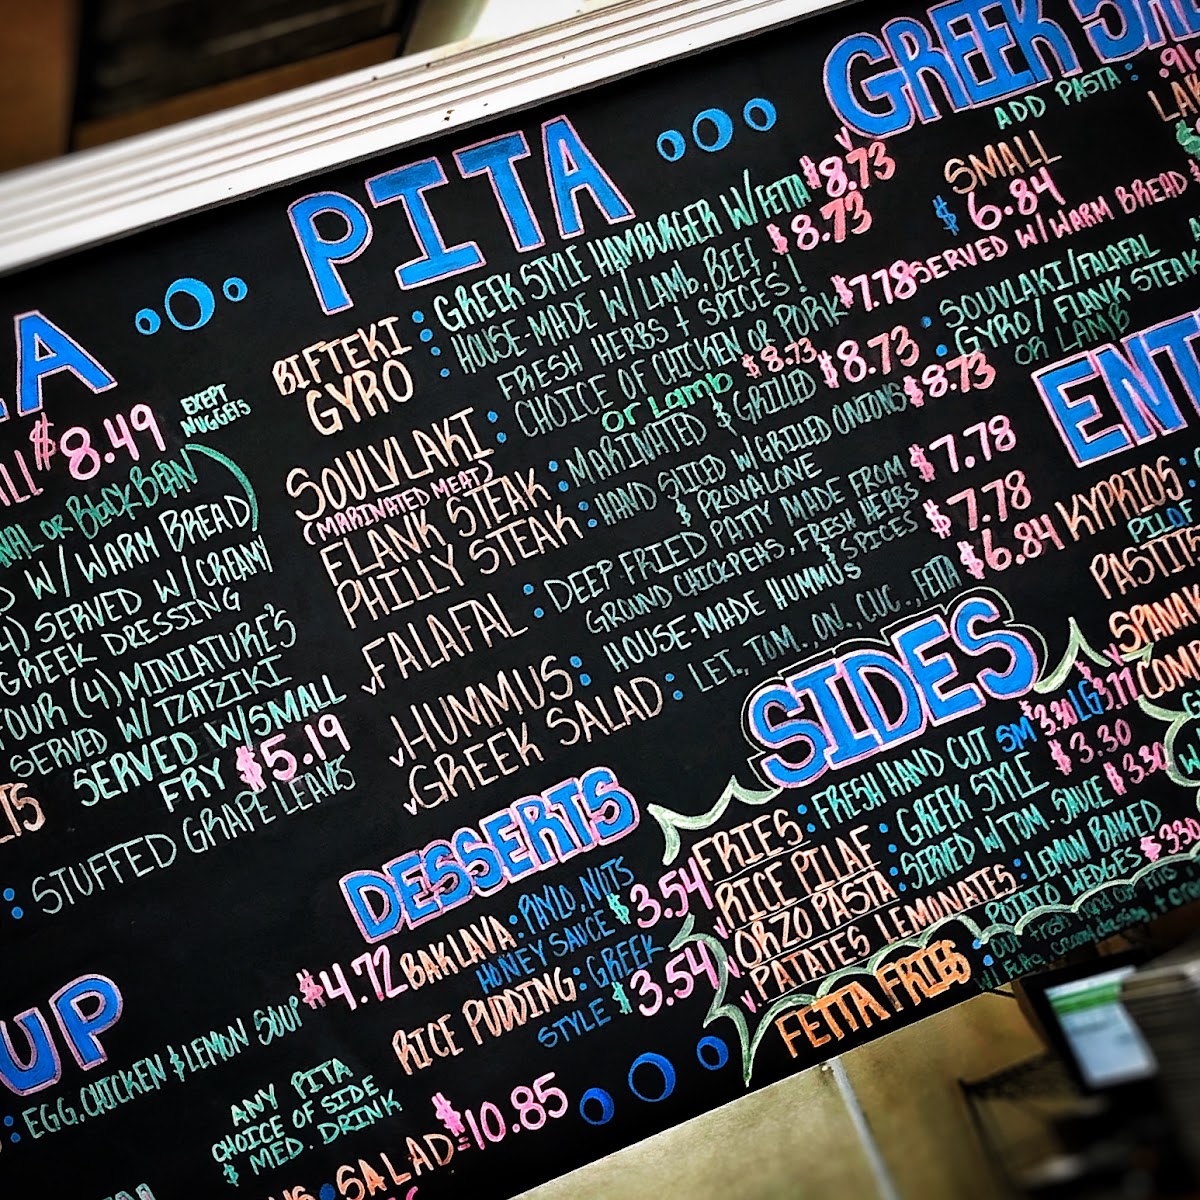 A
ALL $8.49 EXEPT NUGGETS
OR BLACK BEAN
W/ WARM BREAD
4) SERVED W/ CREAMY
GREEK DRESSING
FOUR (4) MINIATURE'S
SERVED W/ TZATZIKI
SERVED W/ SMALL
FRY $5.19
: STUFFED GRAPE LEAVES
UP
: EGG, CHICKEN & LEMON SOUP $4.72
ANY PITA
CHOICE OF SIDE
& MED. DRINK
SALAD = $10.85
PITA
BIFTEKI GYRO : GREEK STYLE HAMBURGER W/ FETTA $8.73
HOUSE-MADE W/ LAMB, BEEF $8.73
FRESH HERBS + SPICES!
SOULVLAKI : CHOICE OF CHICKEN OR PORK $7.78
(MARINATED MEAT) or Lamb $8.73
FLANK STEAK : MARINATED & GRILLED $8.73
PHILLY STEAK : HAND SLICED W/ GRILLED ONIONS $8.73
& PROVALONE
FALAFAL : DEEP FRIED PATTY MADE FROM $7.78
GROUND CHICKPEAS, FRESH HERBS
& SPICES
HUMMUS : HOUSE-MADE HUMMUS $7.78
GREEK SALAD : LET, TOM. ON., CUC., FETTA $6.84
DESSERTS
BAKLAVA : PHYLO, NUTS
HONEY SAUCE $3.54
RICE PUDDING : GREEK
STYLE $3.54
GREEK
ADD PASTA :
SMALL
$6.84
SERVED W/ WARM BREAD
SOUVLAKI/FALAFAL
GYRO/ FLANK STEAK
OR LAMB
ENT
KYPRIOS :
SIDES
FRIES : FRESH HAND CUT SM $3.30 LG $3.77
RICE PILAF : GREEK STYLE $3.30
ORZO PASTA : SERVED W/ TOM. SAUCE $3.30
PATATES LEMONATES : LEMON BAKED
POTATO WEDGES $3.30
FETTA FRIES : OUR FRESH HAND CUT